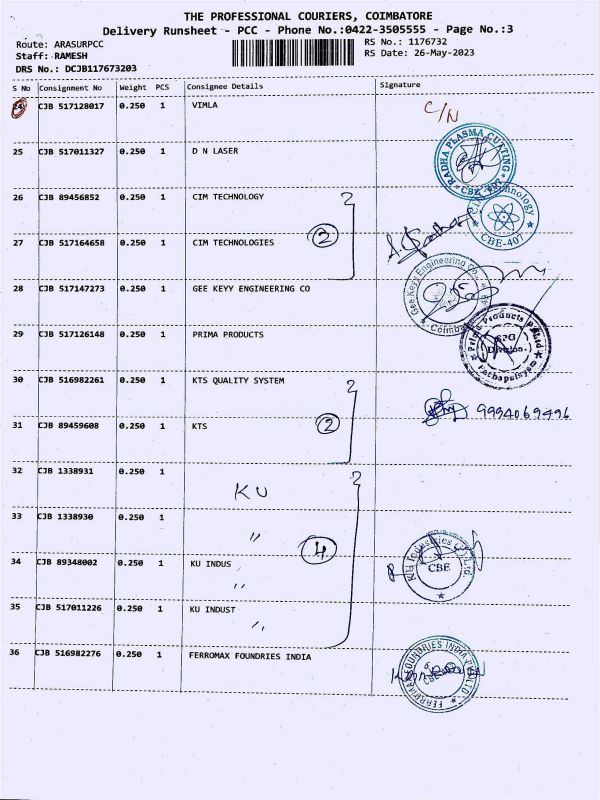 THE PROFESSIONAL COURIERS, COIMBATORE
Delivery Runsheet - PCC - Phone No.:0422-3505555 - Page No.:3
Route: ARASURPCC RS No.: 1176732
Staff: RAMESH RS Date: 26-May-2023
DRS No.: DCJB117673203
S No Consignment No Weight PCS Consignee Details Signature
24 CJB 517128017 0.250 1 VIMLA C/N
25 CJB 517011327 0.250 1 D N LASER
RADHA PLASMA CUATING
26 CJB 89456852 0.250 1 CIM TECHNOLOGY
CBE-407
27 CJB 517164658 0.250 1 CIM TECHNOLOGIES 2
28 CJB 517147273 0.250 1 GEE KEYY ENGINEERING CO
Gee Keyy Engineering
29 CJB 517126148 0.250 1 PRIMA PRODUCTS
Prima Products
Division
30 CJB 516982261 0.250 1 KTS QUALITY SYSTEM
31 CJB 89459608 0.250 1 KTS 2 9994069496
32 CJB 1338931 0.250 1
KU
33 CJB 1338930 0.250 1
"
4
34 CJB 89348002 0.250 1 KU INDUS
"
CBE
35 CJB 517011226 0.250 1 KU INDUST
"
36 CJB 516982276 0.250 1 FERROMAX FOUNDRIES INDIA
FERROMAX FOUNDRIES INDIA